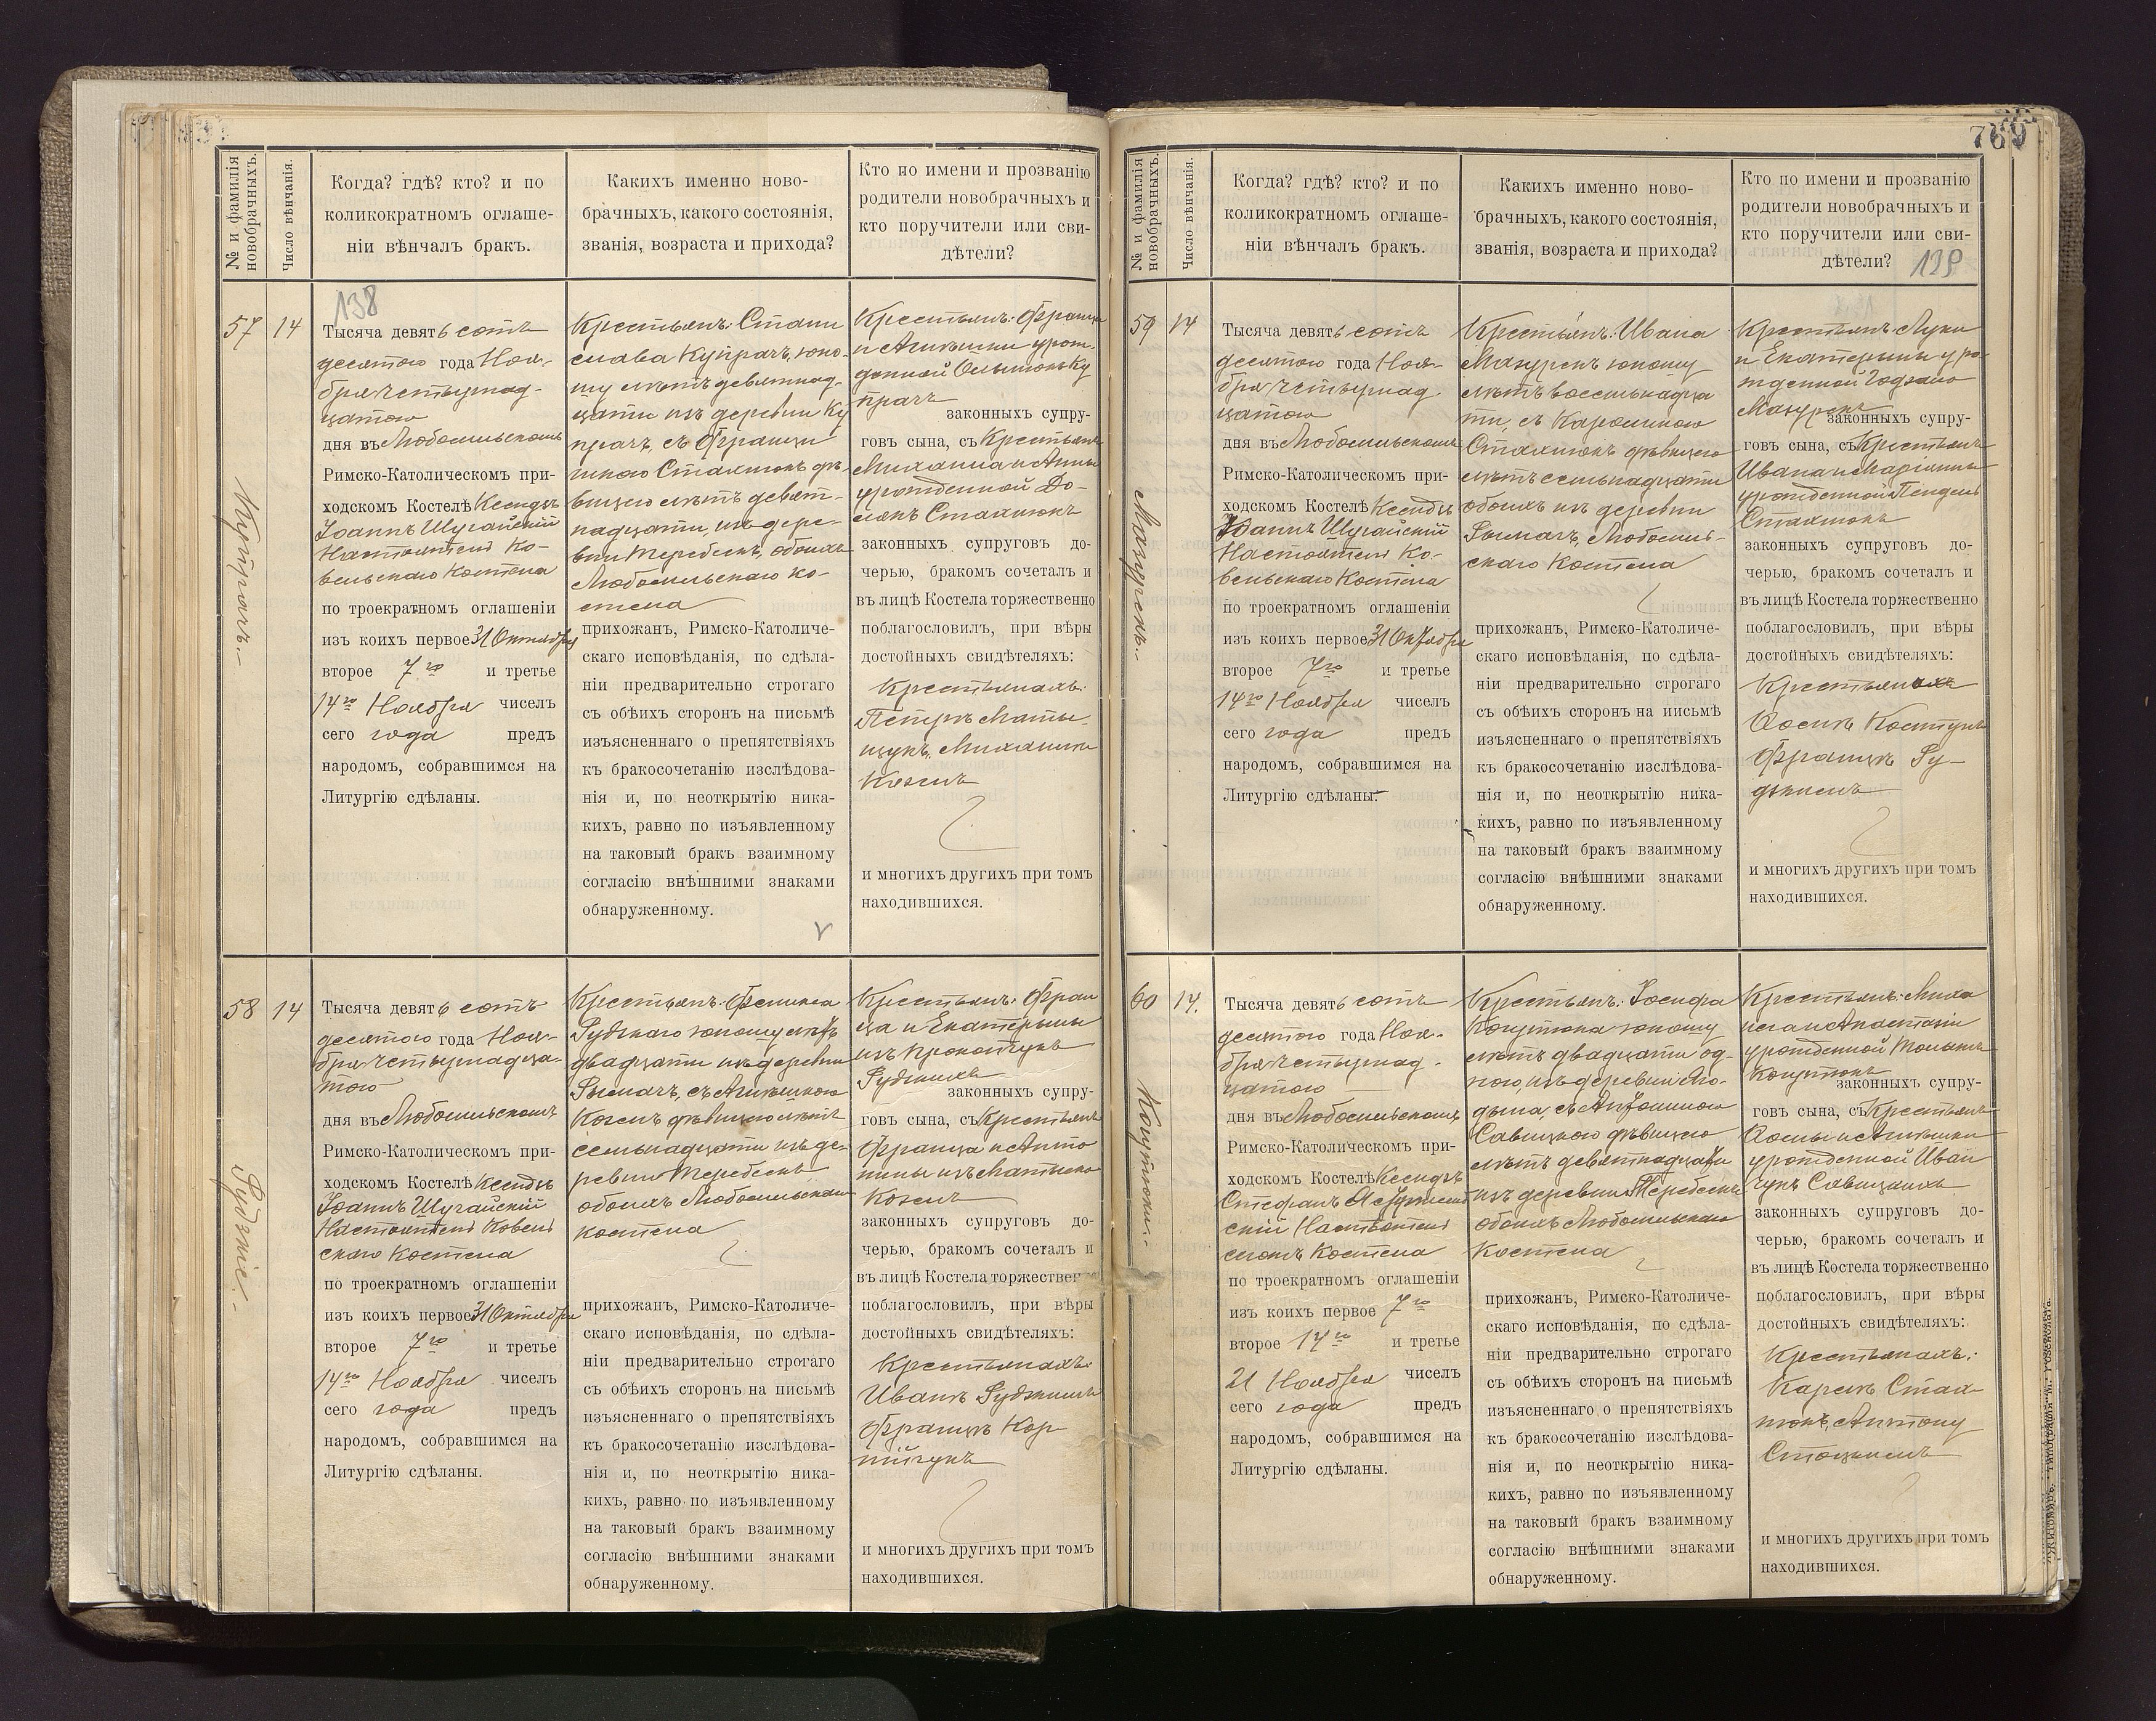 769
№ и фамилія новобрачныхъ.
Число вѣнчанія.
Когда? гдѣ? кто? и по
коликократномъ оглаше-
ніи вѣнчалъ бракъ.
Какихъ именно ново-
брачныхъ, какого состоянія,
званія, возраста и прихода?
Кто по имени и прозванію
родители новобрачныхъ и
кто поручители или сви-
дѣтели?
138
57
14
Купрач.
Тысяча девятьсотъ
десятого года Ноя-
бря четырнад-
цатого
дня въ Любомльскомъ
Римско-Католическомъ при-
ходскомъ Костелѣ Ксендзъ
Іоаннъ Шугайскій
Настоятель Ко-
вельскаго Костела
по троекратномъ оглашеніи
изъ коихъ первое 31 Октября
второе 7го и третье
14го Ноября чиселъ
сего года предъ
народомъ, собравшимся на
Литургію сдѣланы.
Крестьянъ: Стани
слава Купрачъ, юно-
шу лѣтъ девятнад-
цати изъ деревни Ку
прачъ, съ Францы
шкою Стахнюкъ дѣ-
вицею лѣтъ девят-
надцати, изъ дере-
вни Теребейкъ, обоихъ
Любомльскаго ко-
стела
прихожанъ, Римско-Католиче-
скаго исповѣданія, по сдѣла-
ніи предварительно строгаго
съ обѣихъ сторонъ на письмѣ
изъясненнаго о препятствіяхъ
къ бракосочетанію изслѣдова-
нія и, по неоткрытію ника-
кихъ, равно по изъявленному
на таковый бракъ взаимному
согласію внѣшними знаками
обнаруженному.
Крестьянъ: Франца
и Агнешки урож-
денной Ольшонъ Ку
прачъ
законныхъ супру-
говъ сына, съ Крестьянъ
Михаила и Анны
урожденной
Стахнюкъ
законныхъ супруговъ до-
черью, бракомъ сочеталъ и
въ лицѣ Костела торжественно
поблагословилъ, при вѣры
достойныхъ свидѣтеляхъ:
Крестьянахъ:
Петръ Маты-
щукъ, Михаилъ
Козелъ
и многихъ другихъ при томъ
находившихся.
58
14
Рудзкіе.
Тысяча девятьсотъ
десятого года Ноя-
бря четырнадца-
того
дня въ Любомльскомъ
Римско-Католическомъ при-
ходскомъ Костелѣ Ксендзъ
Іоаннъ Шугайскій
Настоятель Ковель
скаго Костела
по троекратномъ оглашеніи
изъ коихъ первое 31 Октября
второе 7го и третье
14го Ноября чиселъ
сего года предъ
народомъ, собравшимся на
Литургію сдѣланы.
Крестьянъ: Феликса
Рудзкаго юношу лѣтъ
двадцати изъ деревни
Рымачъ, съ Агнешкою
Козелъ дѣвицею лѣтъ
семьнадцати изъ де-
ревни Теребейкъ
обоихъ Любомльскаго
костела
прихожанъ, Римско-Католиче-
скаго исповѣданія, по сдѣла-
ніи предварительно строгаго
съ обѣихъ сторонъ на письмѣ
изъясненнаго о препятствіяхъ
къ бракосочетанію изслѣдова-
нія и, по неоткрытію ника-
кихъ, равно по изъявленному
на таковый бракъ взаимному
согласію внѣшними знаками
обнаруженному.
Крестьянъ: Фран
ца и Екатерыны
изъ
Рудзкихъ
законныхъ супру-
говъ сына, съ Крестьянъ
Франца и Анто
нины изъ
Козелъ
законныхъ супруговъ до-
черью, бракомъ сочеталъ и
въ лицѣ Костела торжественно
поблагословилъ, при вѣры
достойныхъ свидѣтеляхъ:
Крестьянахъ:
Иванъ Рудзкимъ
Францъ Кор-
нійчукъ
и многихъ другихъ при томъ
находившихся.
№ и фамилія новобрачныхъ.
Число вѣнчанія.
Когда? гдѣ? кто? и по
коликократномъ оглаше-
ніи вѣнчалъ бракъ.
Какихъ именно ново-
брачныхъ, какого состоянія,
званія, возраста и прихода?
Кто по имени и прозванію
родители новобрачныхъ и
кто поручители или сви-
дѣтели?
139
59
14
Мазурекъ.
Тысяча девятьсотъ
десятого года Ноя-
бря четырнад
цатого
дня въ Любомльскомъ
Римско-Католическомъ при-
ходскомъ Костелѣ Ксендзъ
Іоаннъ Шугайскій
Настоятель Ко-
вельскаго Костела
по троекратномъ оглашеніи
изъ коихъ первое 31 Октября
второе 7го и третье
14го Ноября чиселъ
сего года предъ
народомъ, собравшимся на
Литургію сдѣланы.
Крестьянъ: Ивана
Мазурекъ юношу
лѣтъ восемьнадца
ти, съ Каролиною
Стахнюкъ дѣвицею
лѣтъ семьнадцати
обоихъ изъ деревни
Рымачъ, Любомль-
скаго Костела
прихожанъ, Римско-Католиче-
скаго исповѣданія, по сдѣла-
ніи предварительно строгаго
съ обѣихъ сторонъ на письмѣ
изъясненнаго о препятствіяхъ
къ бракосочетанію изслѣдова-
нія и, по неоткрытію ника-
кихъ, равно по изъявленному
на таковый бракъ взаимному
согласію внѣшними знаками
обнаруженному.
Крестьянъ Луки
и Екатерыны уро-
жденной
Мазурекъ
законныхъ супру-
говъ сына, съ Крестьянъ
Ивана и Маріанны
урожденной
Стахнюкъ
законныхъ супруговъ до-
черью, бракомъ сочеталъ и
въ лицѣ Костела торжественно
поблагословилъ, при вѣры
достойныхъ свидѣтеляхъ:
Крестьянахъ
Осипъ
Францъ Ру-
дзкимъ
и многихъ другихъ при томъ
находившихся.
60
14.
Коцтюки.
Тысяча девятьсотъ
десятого года Ноя-
бря четырнад-
цатого
дня въ Любомльскомъ
Римско-Католическомъ при-
ходскомъ Костелѣ Ксендзъ
Стефанъ
скій Настоятель
сего Костела
по троекратномъ оглашеніи
изъ коихъ первое 7го
второе 14го и третье
21 Ноября чиселъ
сего года предъ
народомъ, собравшимся на
Литургію сдѣланы.
Крестьянъ: Іосифа
Коцтюка юношу
лѣтъ двадцати од-
ного, изъ деревни
съ Антониною
Савицкою дѣвицею
лѣтъ девятнадцати
изъ деревни Теребейкъ
обоихъ Любомльскаго
Костела
прихожанъ, Римско-Католиче-
скаго исповѣданія, по сдѣла-
ніи предварительно строгаго
съ обѣихъ сторонъ на письмѣ
изъясненнаго о препятствіяхъ
къ бракосочетанію изслѣдова-
нія и, по неоткрытію ника-
кихъ, равно по изъявленному
на таковый бракъ взаимному
согласію внѣшними знаками
обнаруженному.
Крестьянъ: Миха
ила и Анастасіи
урожденной
Коцтюкъ
законныхъ супру-
говъ сына, съ Крестьянъ
и Агнешки
урожденной Иван
чукъ Савицкихъ
законныхъ супруговъ до-
черью, бракомъ сочеталъ и
въ лицѣ Костела торжественно
поблагословилъ, при вѣры
достойныхъ свидѣтеляхъ:
Крестьянахъ:
Карлъ Стах-
нюкъ, Антону
и многихъ другихъ при томъ
находившихся.